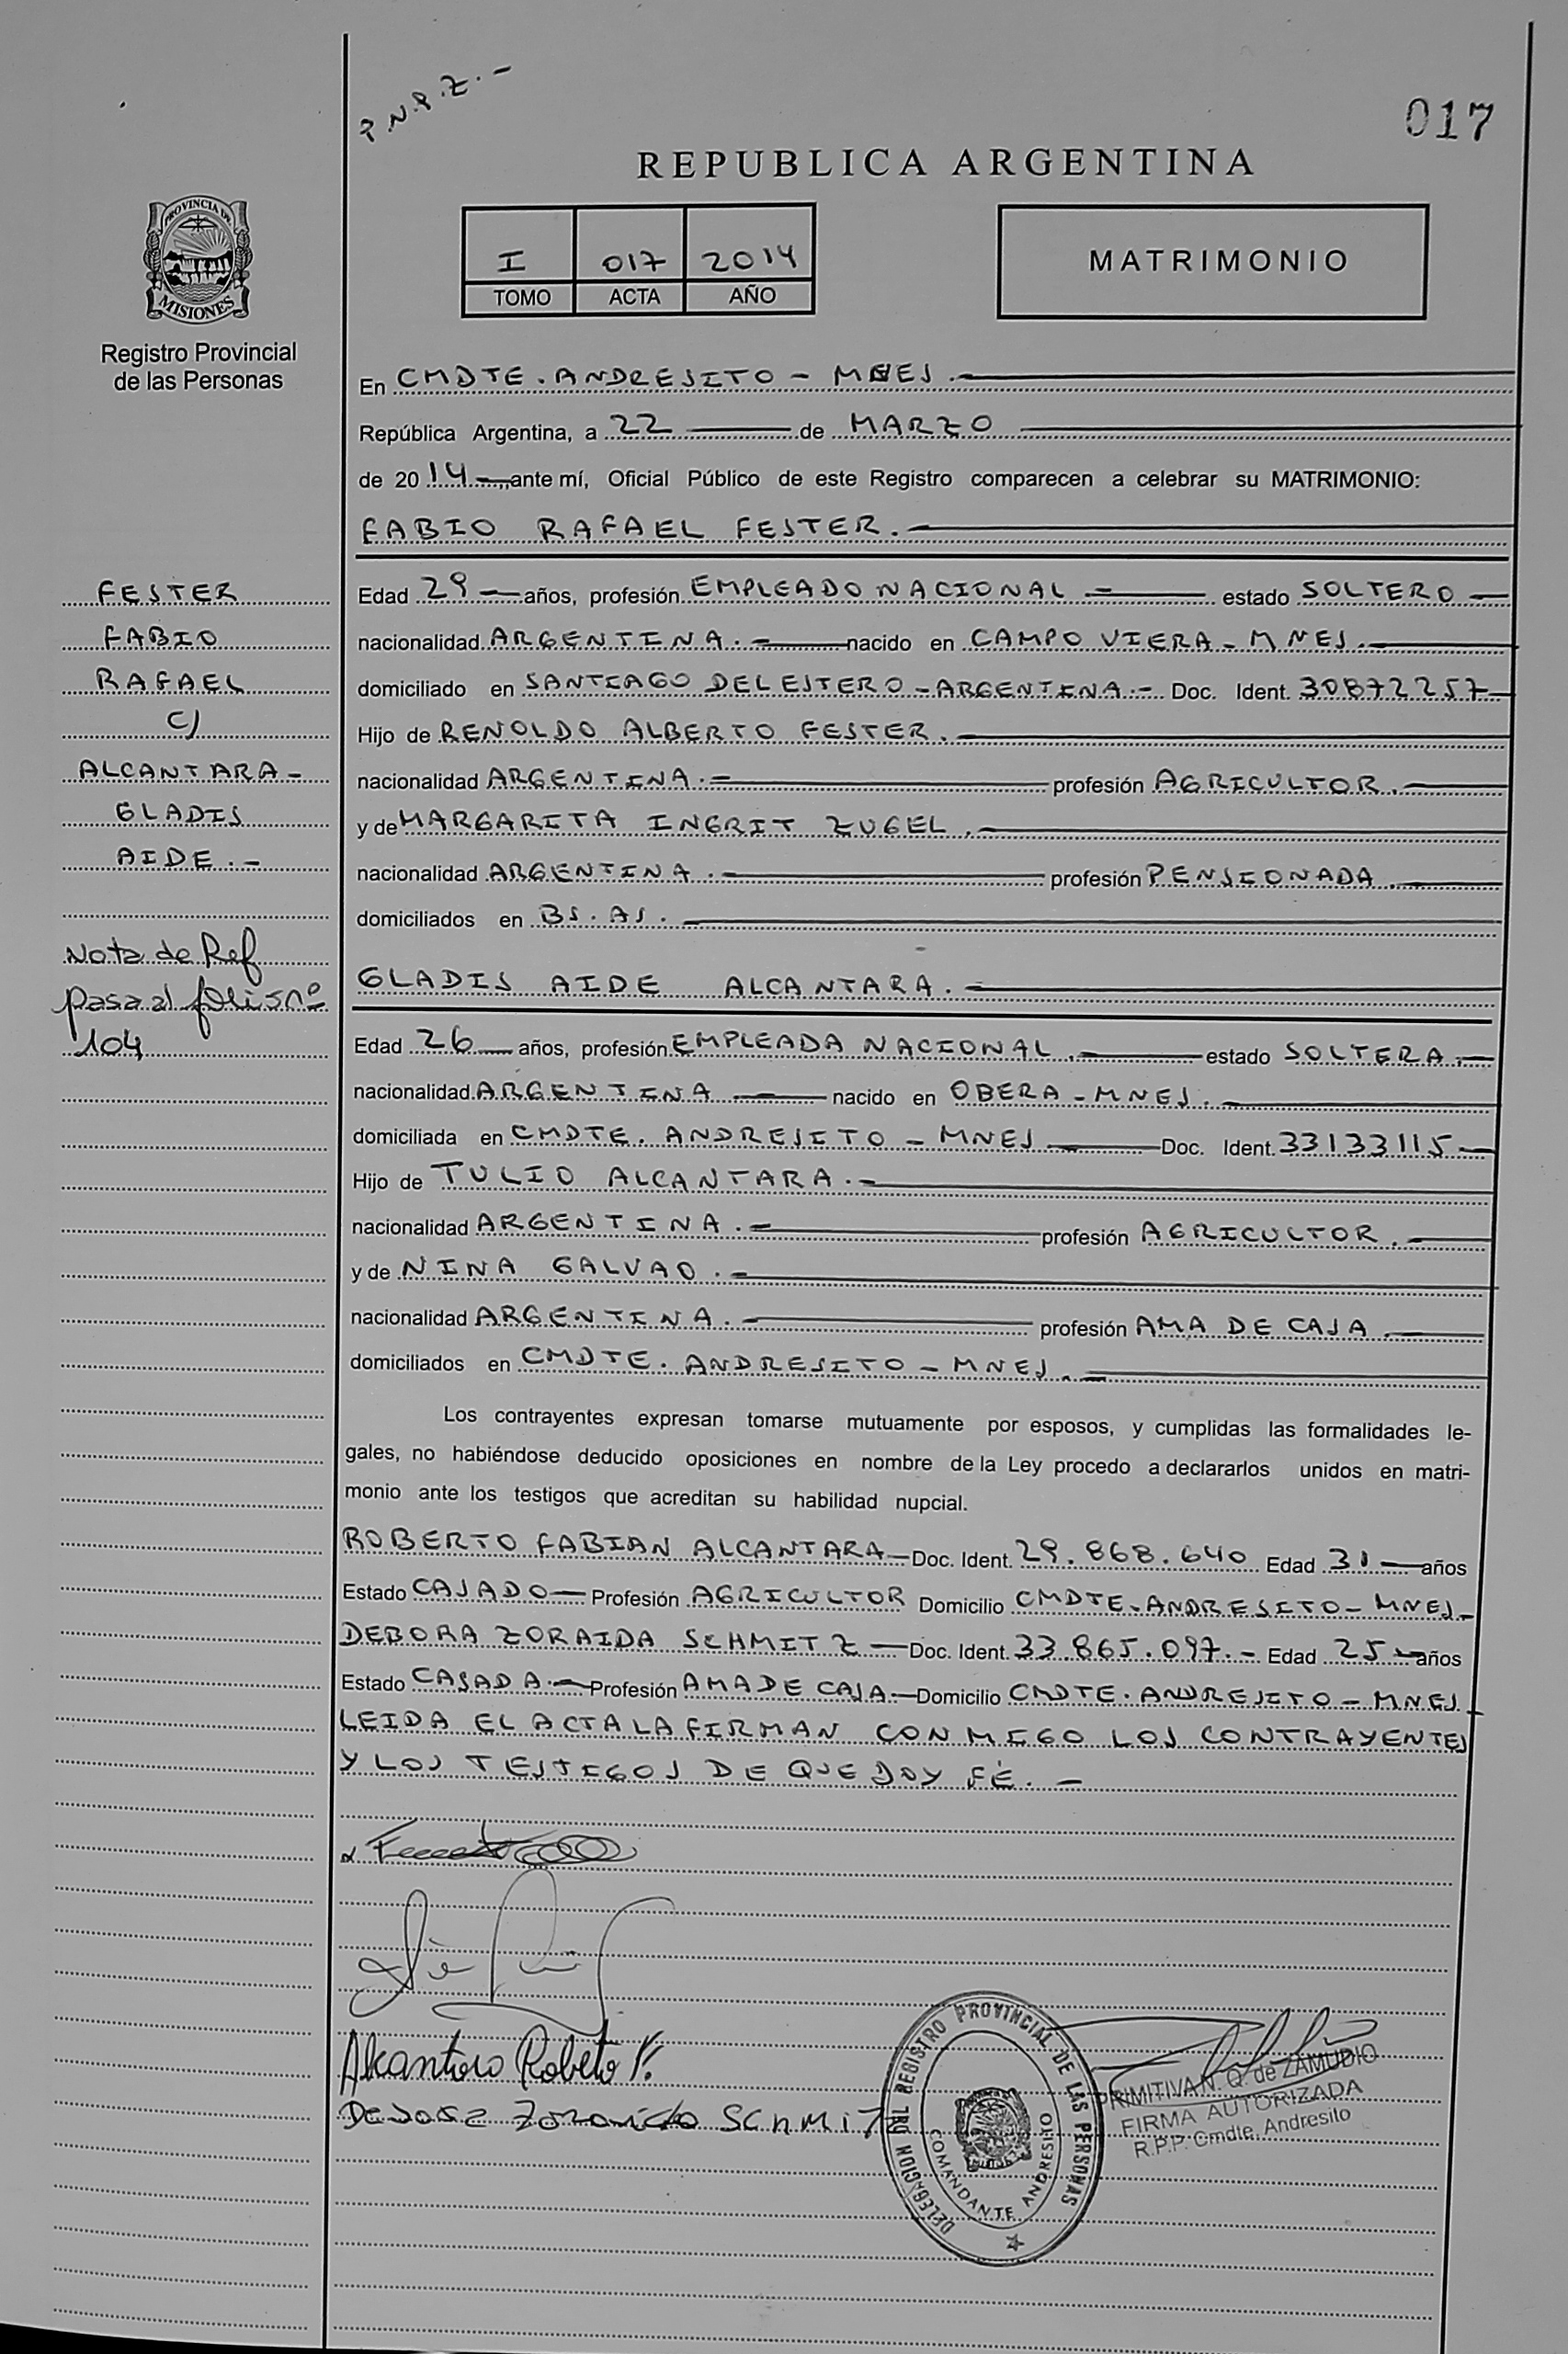 P.N.Q.Z.-
017
REPUBLICA ARGENTINA
I 017 2014
TOMO ACTA AÑO
MATRIMONIO
PROVINCIA DE
MISIONES
Registro Provincial
de las Personas
En CMDTE. ANDRESITO - MNES.-
República Argentina, a 22 de MARZO
de 2014 ante mí, Oficial Público de este Registro comparecen a celebrar su MATRIMONIO:
FABIO RAFAEL FESTER.-
FESTER
FABIO
RAFAEL
C/
ALCANTARA-
GLADIS
AIDE.-
Nota de Ref
pasa al folios nº
104
Edad 29 - años, profesión EMPLEADO NACIONAL - estado SOLTERO -
nacionalidad ARGENTINA.- nacido en CAMPO VIERA - MNES.-
domiciliado en SANTIAGO DEL ESTERO - ARGENTINA.- Doc. Ident. 30872257-
Hijo de RENOLDO ALBERTO FESTER.-
nacionalidad ARGENTINA.- profesión AGRICULTOR.-
y de MARGARITA INGRIT ZUGEL.-
nacionalidad ARGENTINA.- profesión PENSIONADA.-
domiciliados en BS. AS.-
GLADIS AIDE ALCANTARA.-
Edad 26 - años, profesión EMPLEADA NACIONAL.- estado SOLTERA.-
nacionalidad ARGENTINA - nacido en OBERA - MNES.-
domiciliada en CMDTE. ANDRESITO - MNES - Doc. Ident. 33133115-
Hijo de TULIO ALCANTARA.-
nacionalidad ARGENTINA.- profesión AGRICULTOR.-
y de NINA GALVAO.-
nacionalidad ARGENTINA.- profesión AMA DE CASA.-
domiciliados en CMDTE. ANDRESITO - MNES.-
Los contrayentes expresan tomarse mutuamente por esposos, y cumplidas las formalidades le-
gales, no habiéndose deducido oposiciones en nombre de la Ley procedo a declararlos unidos en matri-
monio ante los testigos que acreditan su habilidad nupcial.
ROBERTO FABIAN ALCANTARA - Doc. Ident. 29.868.640 Edad 31 - años
Estado CASADO - Profesión AGRICULTOR Domicilio CMDTE. ANDRESITO - MNES.-
DEBORA ZORAIDA SCHMITZ - Doc. Ident. 33.865.097.- Edad 25 - años
Estado CASADA.- Profesión AMA DE CASA.- Domicilio CMDTE. ANDRESITO - MNES.-
LEIDA EL ACTA LA FIRMAN CONMIGO LOS CONTRAYENTES
Y LOS TESTIGOS DE QUE DOY FÉ.-
Alcantara Roberto F.
Debora Zoraida Schmitz
DELEGACION DEL REGISTRO PROVINCIAL DE LAS PERSONAS
COMANDANTE ANDRESITO
PRIMITIVA N. Q. de ZAMUDIO
FIRMA AUTORIZADA
R.P.P. Cmdte. Andresito